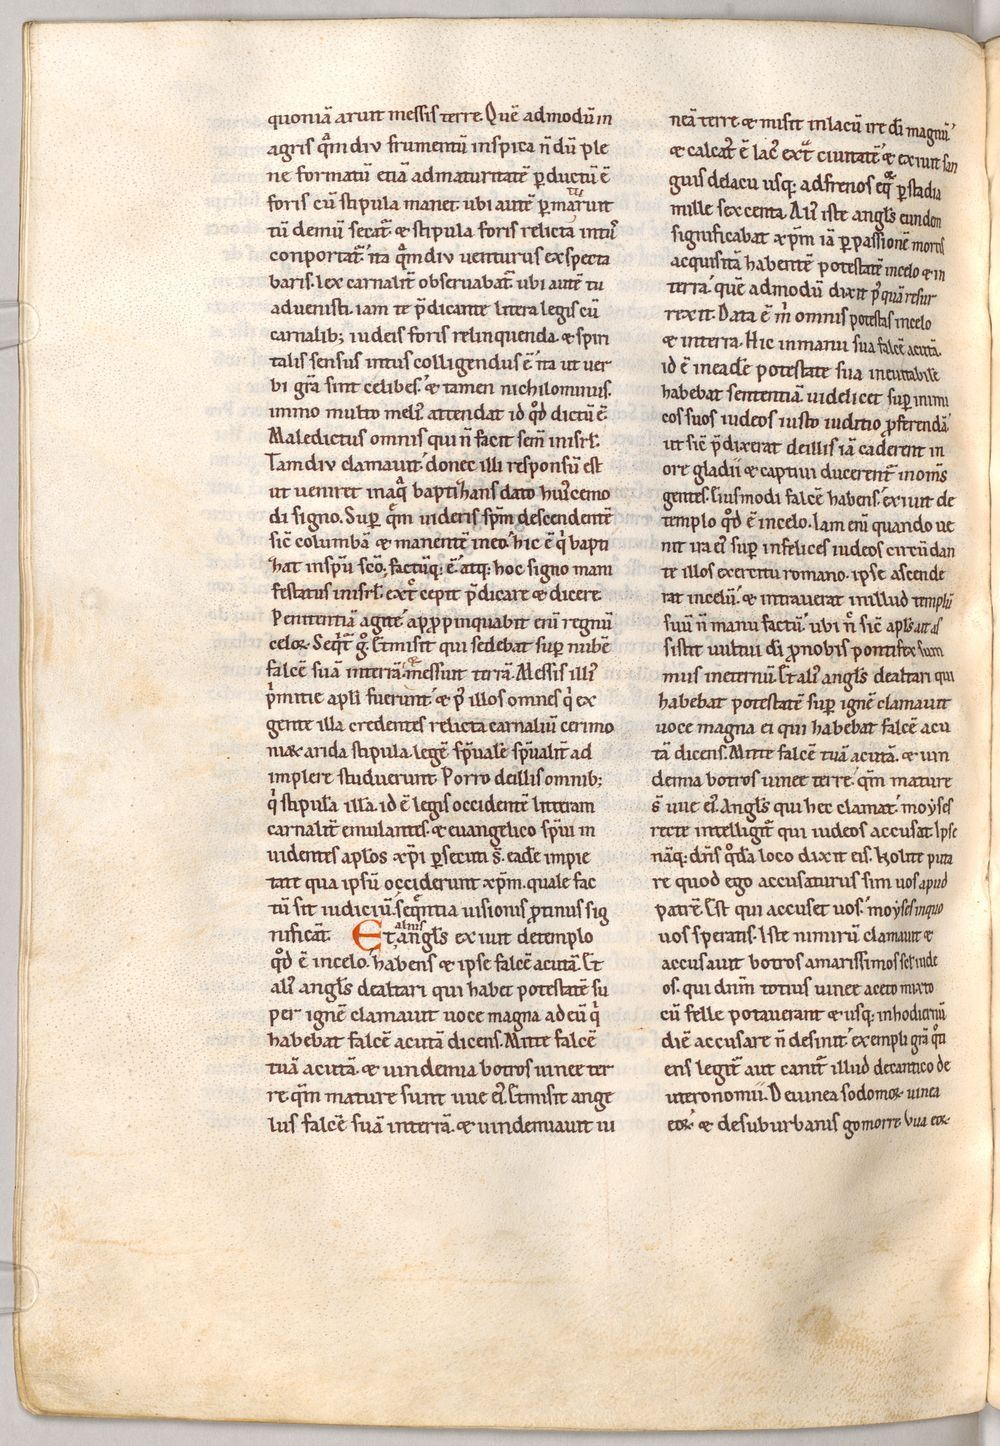 quoniā aruit messis terre. Quē admodū in
agris q̄mdiu frumentū in spica n̄dū ple
ne formatū etiā ad maturitatē pductū ē
foris cū stipula manet. ubi autē pmaturuit
tū demū secat᷑ & stipula foris relicta int᷑
conportat᷑. ita q̄mdiu uenturus exspecta
baris. lex carnalit᷑ obseruabat᷑. ubi autē tu
aduenisti. iam te p̄dicante litera legis cū
carnalib; iudeis foris relinquenda. & spiri
talis sensus intus colligendus ē. ita ut uer
bi gr̄a sint celibes. & tamen nichilominus.
immo multo meli᷑ attendat id qd̄ dictū ē.
Maledictus omnis qui n̄ facit sem̄ in isrl̄.
Tam diu clamauit donec illi responsū est
ut ueniret in aq̄ baptizans dato huiꝰcemo
di signo. Sup q̄m uideris spm̄ descendentē
sic̄ columbā & manentē in eo. hic ē q̄ bapti
zat in spū scō. factūq: ē. atq: hoc signo mani
festatus in isrl̄. ext̄ cepit p̄dicare & dicere.
Penitentiā agite. appropinquabit eni regnū
celoꝝ. Seqt᷑ g̊. Et misit qui sedebat sup nubē
falcē suā in terrā. & messuit terrā. Messis illi᷑
p̄mitie apli fuerunt. & p̄ illos omnes q̄ ex
gente illa credentes relicta carnaliū cerimo
niaꝝ arida stipula. legē spūalē spūalit᷑ ad
implere studuerunt. Porro de illis omnib;
q̄ stipula illa. id ē legis occidentē litteram
carnalit᷑ emulantes. & euangelico spūi in
uidentes apl̄os xp̄i psecuti s̄. eadē impie
tate qua ipsū occiderunt xp̄m. quale fac
tū sit iudiciū. seq̄ntia uisionis protinus sig
nificat. Et alius angl̄s exiuit de templo
qd̄ ē in celo. habens & ipse falcē acutā. Et
ali᷑ angl̄s de altari qui habet potestatē su
per ignē clamauit uoce magna ad eū q̄
habebat falcē acutā dicens. Mitte falcē
tuā acutā. & uindemia botros uinee ter
re. q̄m mature sunt uue ei᷑. Et misit ange
lus falcē suā in terrā. & uindemiauit ui
neā terre. & misit in lacū ire di magnū.
& calcat᷑ ē lac᷑ ext̄ ciuitatē. & exiuit san
guis de lacu usq: ad frenos eqꝝ p stadia
mille sexcenta. Ali᷑ iste angl̄s eundem
significabat xp̄m iā p passionē mortis
acquisitā habentē potestatē in celo & in
terra. quē admodū dixit p᷑ quā resur
rexit. Data ē m̄ omnis potestas in celo
& in terra. Hic in manu sua falcē acutā.
id ē in eadē potestate sua ineuitabile
habebat sententiā uidelicet sup inimi
cos suos iudeos iusto iuditio pferendā.
ut sic̄ p̄dixerat de illis iā caderent in
ore gladii & captiui ducerent᷑ in om̄s
gentes. Eiusmodi falcē habens. exiuit de
templo qd̄ ē in celo. Iam eni quando ue
nit ira ei᷑ sup infelices iudeos circūdan
te illos exercitu romano. ipse ascende
rat in celū. & intrauerat in illud templū
suū n̄ manu factū. ubi n̄c sic̄ apl̄s ait as
sistit uultui di pro nobis pontifex
mus in eternū. Et ali᷑ angl̄s de altari qui
habebat potestatē sup ignē clamauit
uoce magna ei qui habebat falcē acu
tā dicens. Mitte falcē tuā acutā. & uin
demia botros uinee terre. q̄m mature
s̄ uue ei᷑. Angl̄s qui hec clamat. moyses
recte intelligit᷑ qui iudeos accusat. Ipse
nāq: dn̄s qdā loco dixit eis. Nolite puta
re quod ego accusaturus sim uos apud
patrē. Est qui accuset uos. moyses in quo
uos speratis. Iste nimirū clamauit &
accusauit botros amarissimos sc̄ iude
os. qui dn̄m totius uinee aceto mixto
cū felle potauerunt & usq: in hodiernū
diē accusare n̄ desinit. exempli gr̄a qti
ens legit᷑ aut canit᷑ illud de cantico de
uteronomii. De uinea sodomoꝝ uinea
eoꝝ. & de suburbanis gomorre. Vua eoꝝ